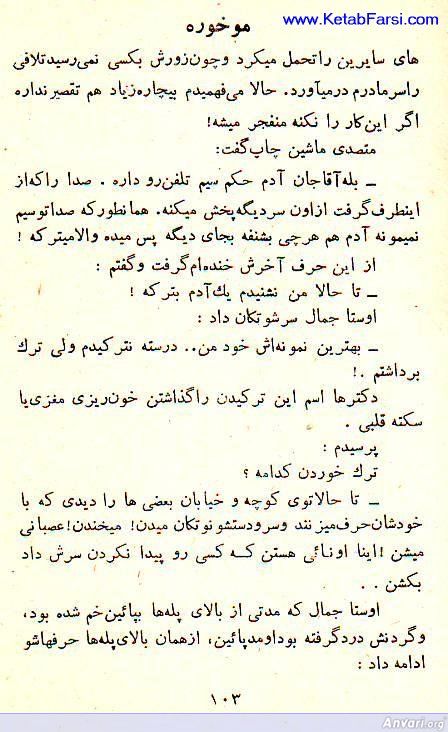 www.KetabFarsi.com
موخوره
های سایرین را تحمل میکرد و چون زورش بکسی نمی‌رسید تلافی
را سر مادرم در میآورد. حالا می‌فهمیدم بیچاره زیاد هم تقصیر نداره
اگر این کار را نکنه منفجر میشه!
متصدی ماشین چاپ گفت:
ـ بله آقاجان آدم حکم سیم تلفن رو داره . صدا را که از
اینطرف گرفت از اون سر دیگه پخش میکنه. همانطور که صدا تو سیم
نمیمونه آدم هم هرچی بشنفه بجای دیگه پس میده والا میترکه !
از این حرف آخرش خنده‌ام گرفت و گفتم :
ـ تا حالا من نشنیدم یك آدم بترکه !
اوستا جمال سرشو تکان داد :
ـ بهترین نمونه‌اش خود من.. درسته نترکیدم ولی ترك
برداشتم .!
دکترها اسم این ترکیدن را گذاشتن خون‌ریزی مغزی یا
سکته قلبی .
پرسیدم :
ترك خوردن کدامه ؟
ـ تا حالا توی کوچه و خیابان بعضی ها را دیدی که با
خودشان حرف میزنند و سر و دستشونو تکان میدن! میخندن! عصبانی
میشن ! اینا اونائی هستن کـه کسی رو پیدا نکردن سرش داد
بکشن . .
اوستا جمال که مدتی از بالای پله‌ها بپائین خم شده بود،
و گردنش درد گرفته بود اومد پائین، از همان بالای پله‌ها حرفهاشو
ادامه داد :
۱۰۳
Anvari.org